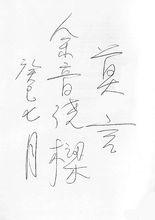 莫言
余音绕樑
癸巳七月